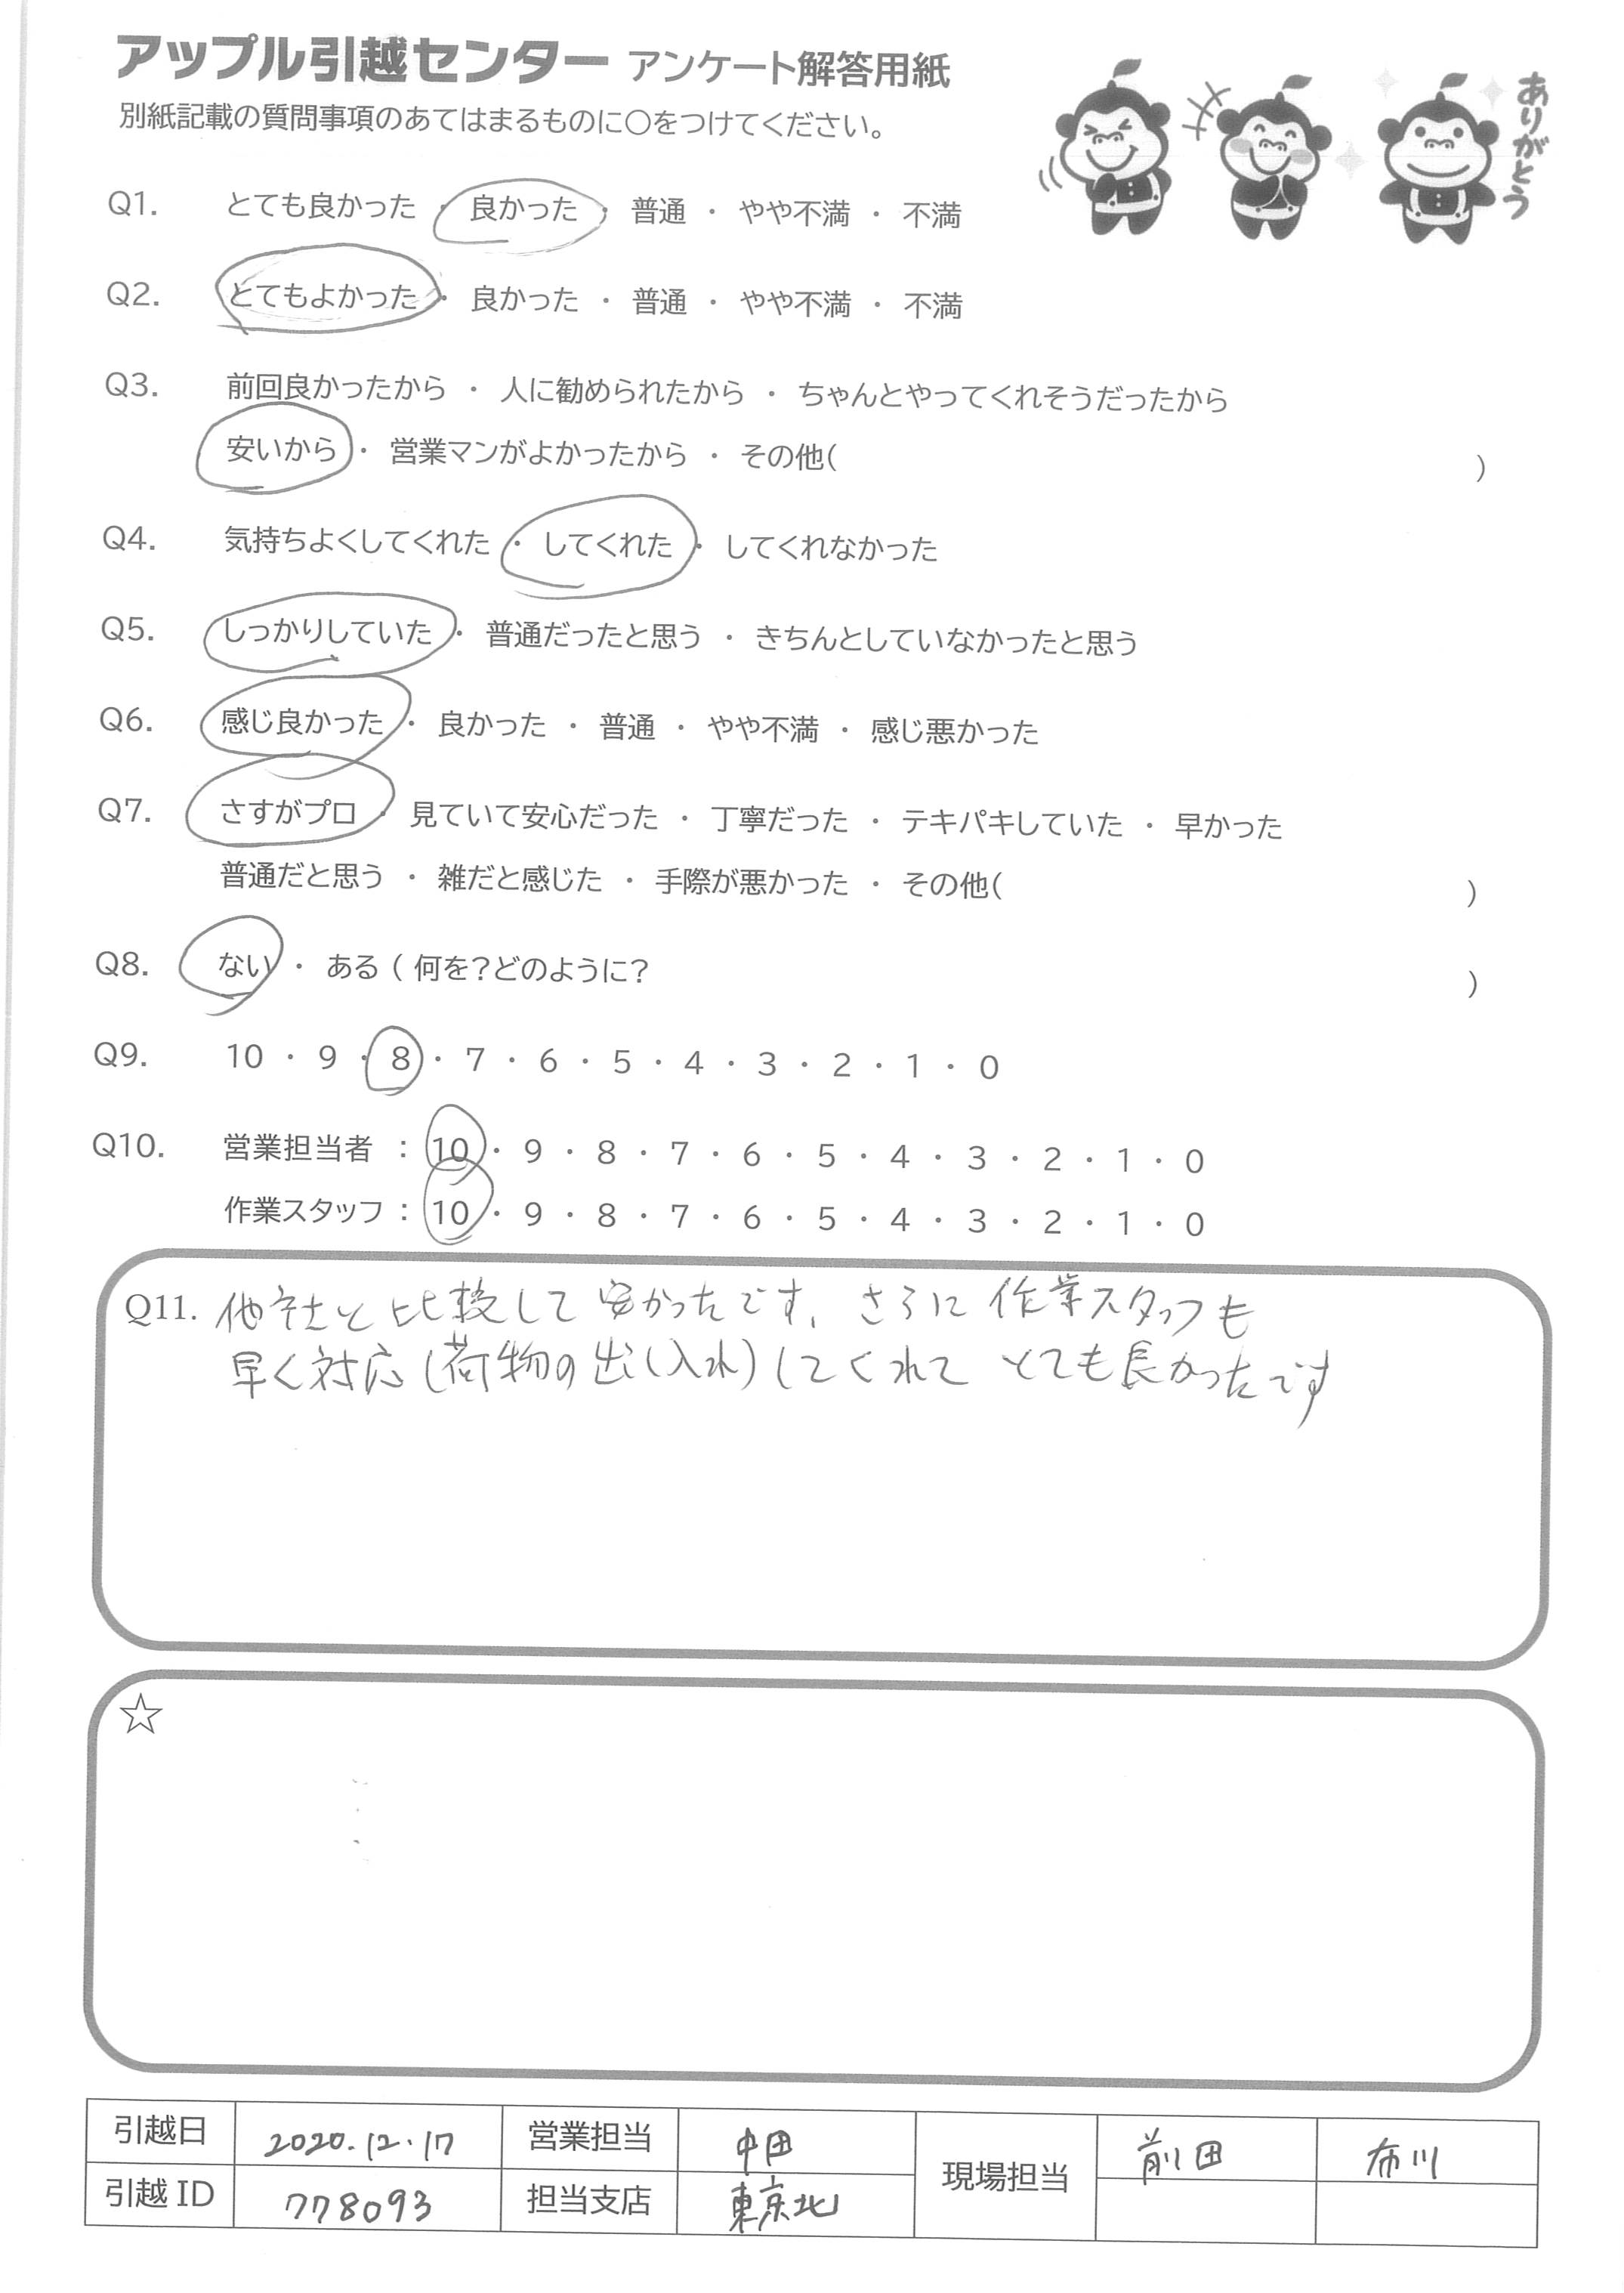 アップル引越センター アンケート解答用紙
別紙記載の質問事項のあてはまるものに〇をつけてください。
ありがとう
Q1. とても良かった ・ 良かった ・ 普通 ・ やや不満 ・ 不満
Q2. とてもよかった ・ 良かった ・ 普通 ・ やや不満 ・ 不満
Q3. 前回良かったから ・ 人に勧められたから ・ ちゃんとやってくれそうだったから
安いから ・ 営業マンがよかったから ・ その他( )
Q4. 気持ちよくしてくれた ・ してくれた ・ してくれなかった
Q5. しっかりしていた ・ 普通だったと思う ・ きちんとしていなかったと思う
Q6. 感じ良かった ・ 良かった ・ 普通 ・ やや不満 ・ 感じ悪かった
Q7. さすがプロ ・ 見ていて安心だった ・ 丁寧だった ・ テキパキしていた ・ 早かった
普通だと思う ・ 雑だと感じた ・ 手際が悪かった ・ その他( )
Q8. ない ・ ある ( 何を?どのように? )
Q9. 10 ・ 9 ・ 8 ・ 7 ・ 6 ・ 5 ・ 4 ・ 3 ・ 2 ・ 1 ・ 0
Q10. 営業担当者 : 10 ・ 9 ・ 8 ・ 7 ・ 6 ・ 5 ・ 4 ・ 3 ・ 2 ・ 1 ・ 0
作業スタッフ : 10 ・ 9 ・ 8 ・ 7 ・ 6 ・ 5 ・ 4 ・ 3 ・ 2 ・ 1 ・ 0
Q11. 他社と比較して安かったです、さらに作業スタッフも
早く対応(荷物の出し入れ)してくれてとても良かったです
☆
引越日 2020.12.17 営業担当 中田 現場担当 前田 布川
引越 ID 778093 担当支店 東京北